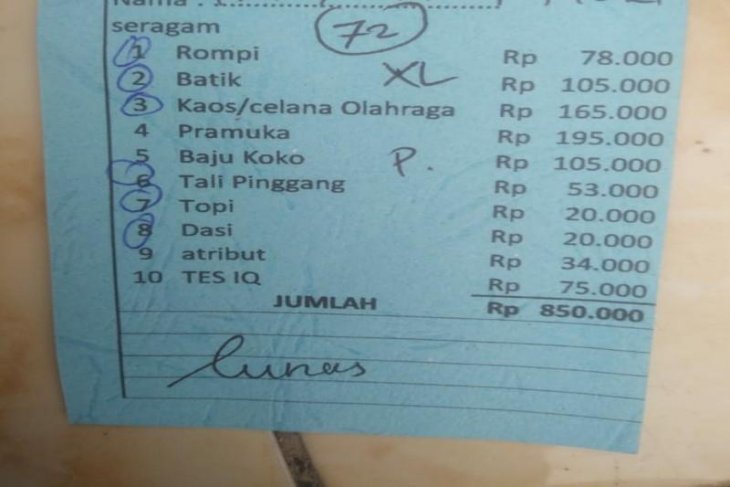 Nama :
seragam 72
1 Rompi Rp 78.000
2 Batik XL Rp 105.000
3 Kaos/celana Olahraga Rp 165.000
4 Pramuka Rp 195.000
5 Baju Koko P. Rp 105.000
6 Tali Pinggang Rp 53.000
7 Topi Rp 20.000
8 Dasi Rp 20.000
9 atribut Rp 34.000
10 TES IQ Rp 75.000
JUMLAH Rp 850.000
lunas